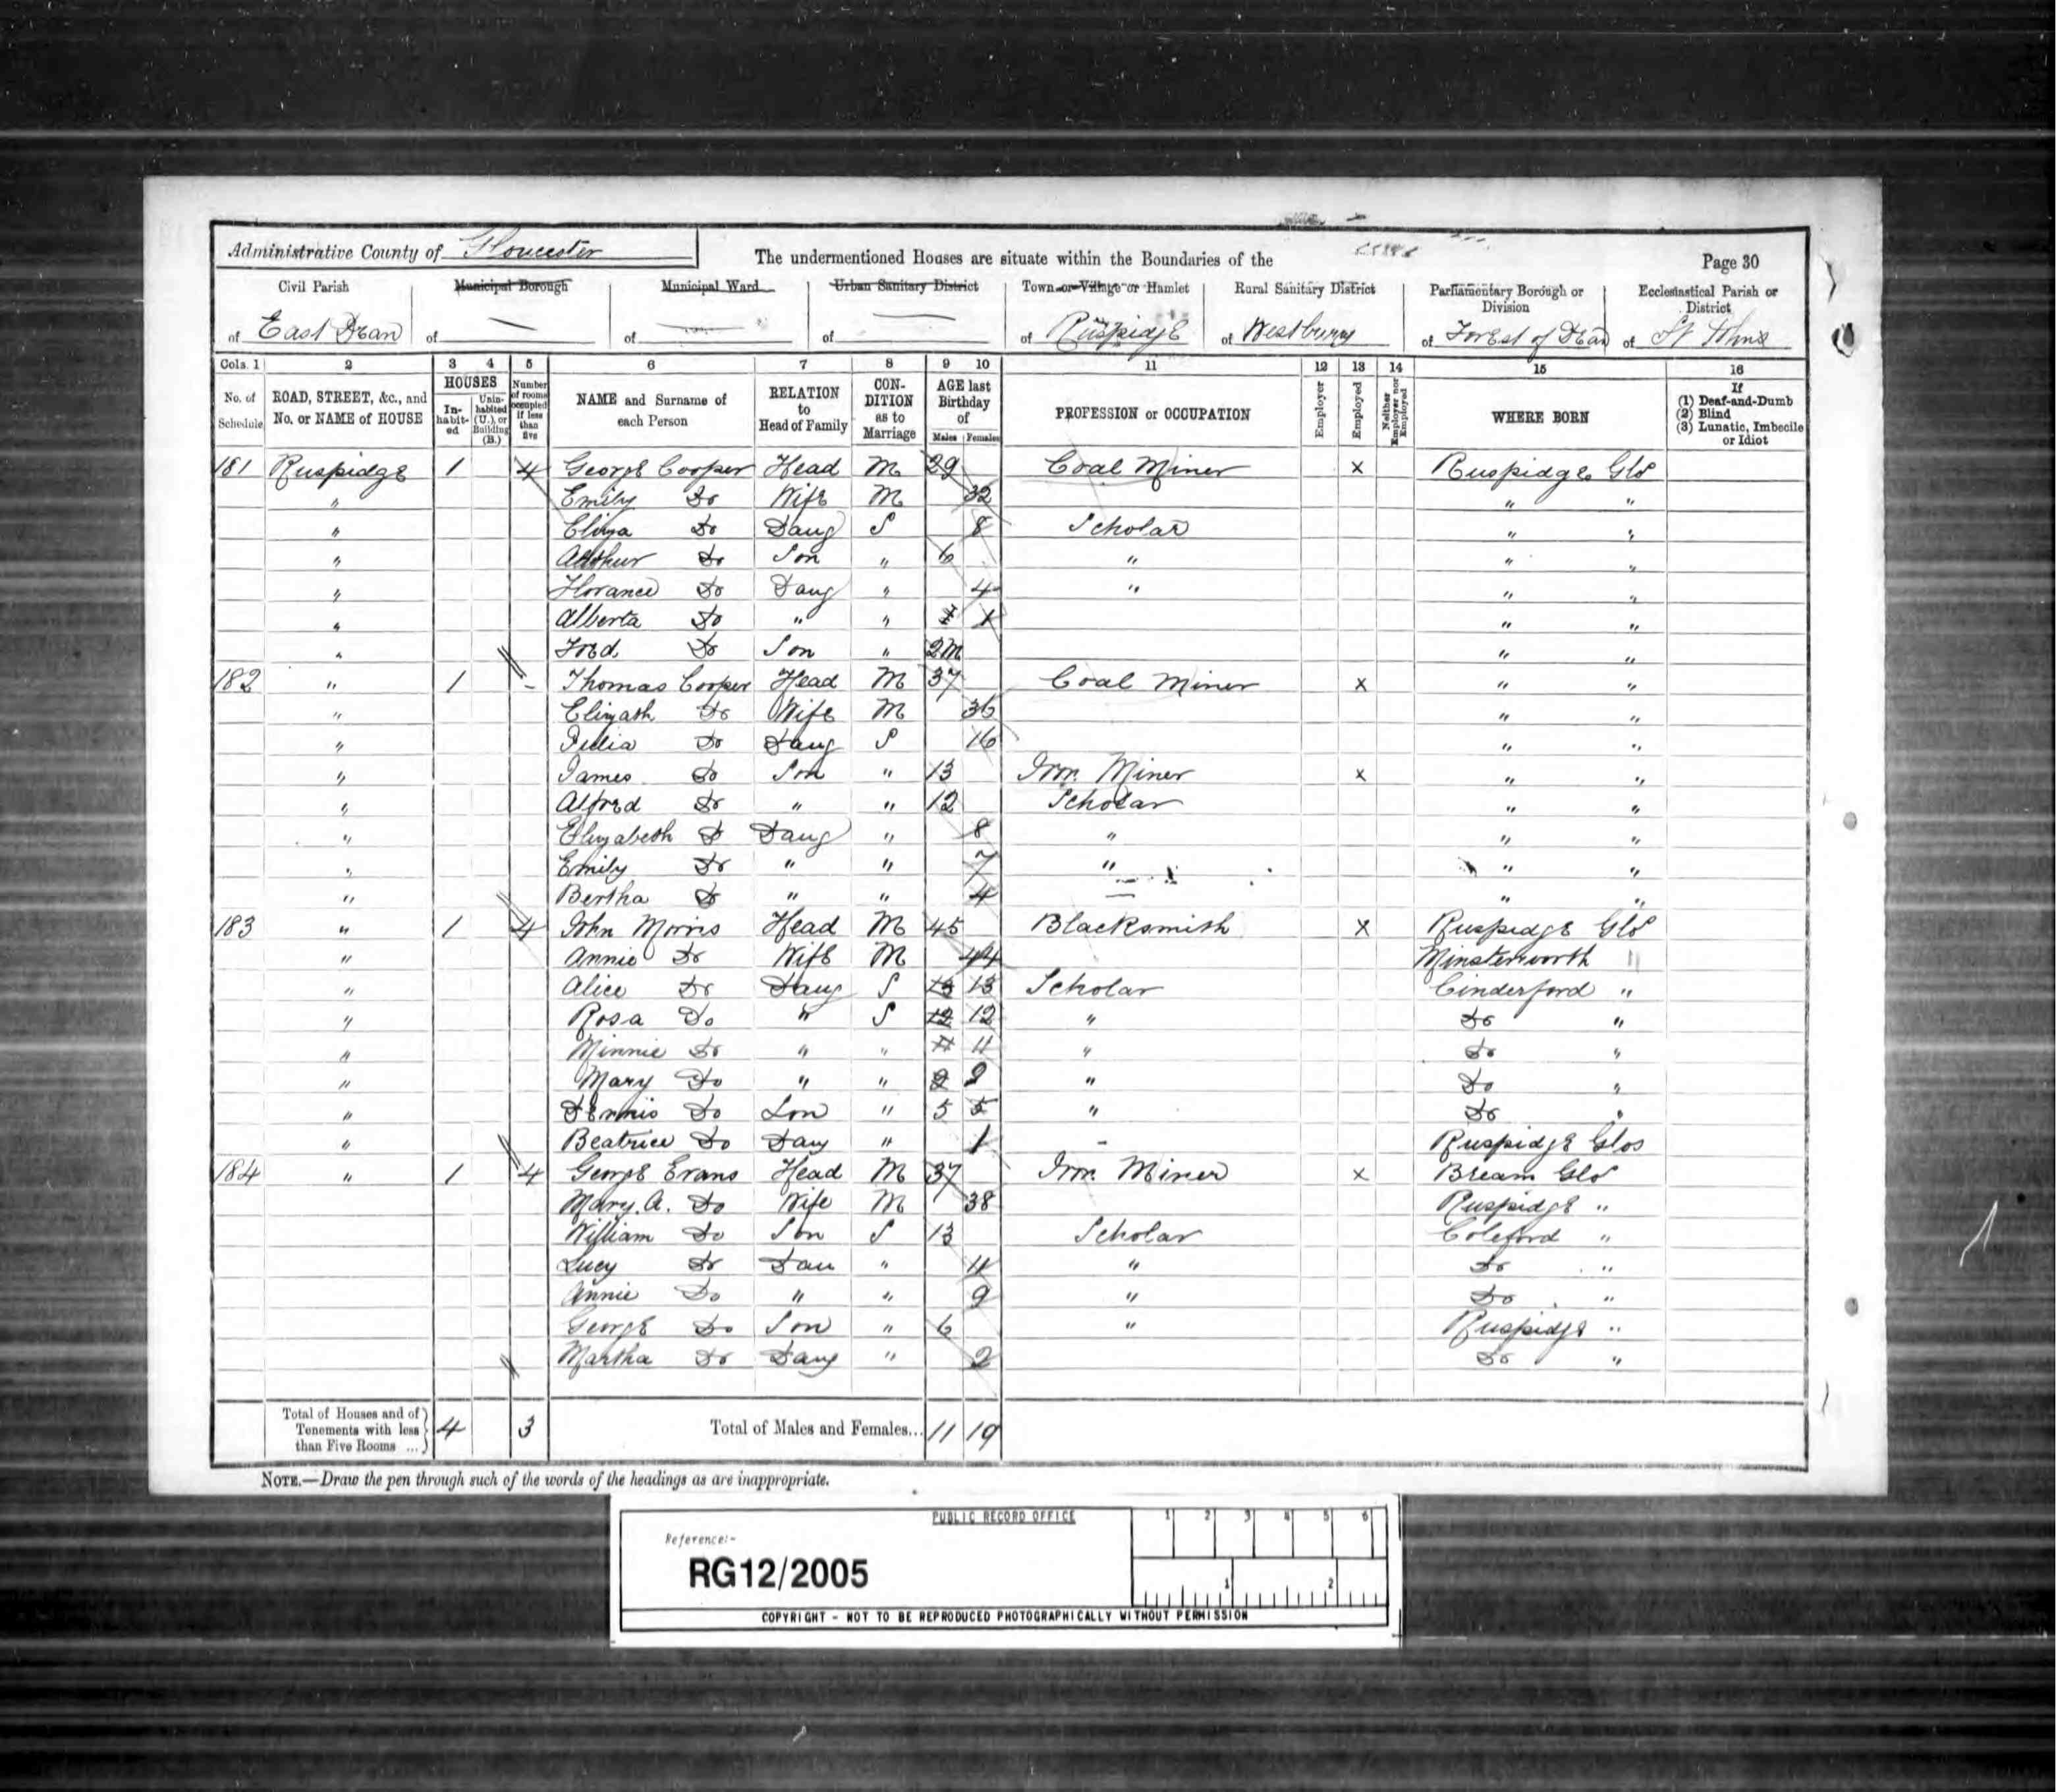 Administrative County of Gloucester
The undermentioned Houses are situate within the Boundaries of the
Page 30
Civil Parish Municipal Borough Municipal Ward Urban Sanitary District Town or Village or Hamlet Rural Sanitary District Parliamentary Borough or Division Ecclesiastical Parish or District
of East Dean of — of — of — of Ruspidge of Westbury of Forest of Dean of St Johns
Cols. 1 2 3 4 5 6 7 8 9 10 11 12 13 14 15 16
No. of Schedule ROAD, STREET, &c., and No. or NAME of HOUSE HOUSES In-habit-ed Unin-habited (U.), or Building (B.) Number of rooms occupied if less than five NAME and Surname of each Person RELATION to Head of Family CON-DITION as to Marriage AGE last Birthday of Males Females PROFESSION or OCCUPATION Employer Employed Neither Employer nor Employed WHERE BORN If (1) Deaf-and-Dumb (2) Blind (3) Lunatic, Imbecile or Idiot
181 Ruspidge 1 4 George Cooper Head M 29 Coal Miner x Ruspidge Glos
" Emily Do Wife M 32 " "
" Eliza Do Daug S 8 Scholar " "
" Arthur Do Son " 6 " " "
" Florance Do Daug " 4 " " "
" Alberta Do " " 1 " "
" Fred Do Son " 2m " "
182 " 1 - Thomas Cooper Head M 37 Coal Miner x " "
" Elizath Do Wife M 36 " "
" Julia Do Daug S 16 " "
" James Do Son " 13 Iron Miner x " "
" Alfred Do " " 12 Scholar " "
" Elizabeth Do Daug " 8 " " "
" Emily Do " " 7 " " "
" Bertha Do " " 4 — " "
183 " 1 4 John Morris Head M 45 Blacksmith x Ruspidge Glos
" Annie Do Wife M 44 Minsterworth "
" Alice Do Daug S 13 13 Scholar Cinderford "
" Rosa Do " S 12 12 " Do "
" Minnie Do " " 11 11 " Do "
" Mary Do " " 9 9 " Do "
" Dennis Do Son " 5 5 " Do "
" Beatrice Do Daug " 1 - Ruspidge Glos
184 " 1 4 George Evans Head M 37 Iron Miner x Bream Glos
Mary. A. Do Wife M 38 Ruspidge "
William Do Son S 13 Scholar Coleford "
Lucy Do Dau " 11 " Do "
Annie Do " " 9 " Do "
George Do Son " 6 " Ruspidge "
Martha Do Daug " 2 Do "
Total of Houses and of Tenements with less than Five Rooms ... 4 3 Total of Males and Females... 11 19
NOTE.—Draw the pen through such of the words of the headings as are inappropriate.
PUBLIC RECORD OFFICE
1 2 3 4 5 6
Reference:-
RG12/2005
1 2
COPYRIGHT - NOT TO BE REPRODUCED PHOTOGRAPHICALLY WITHOUT PERMISSION